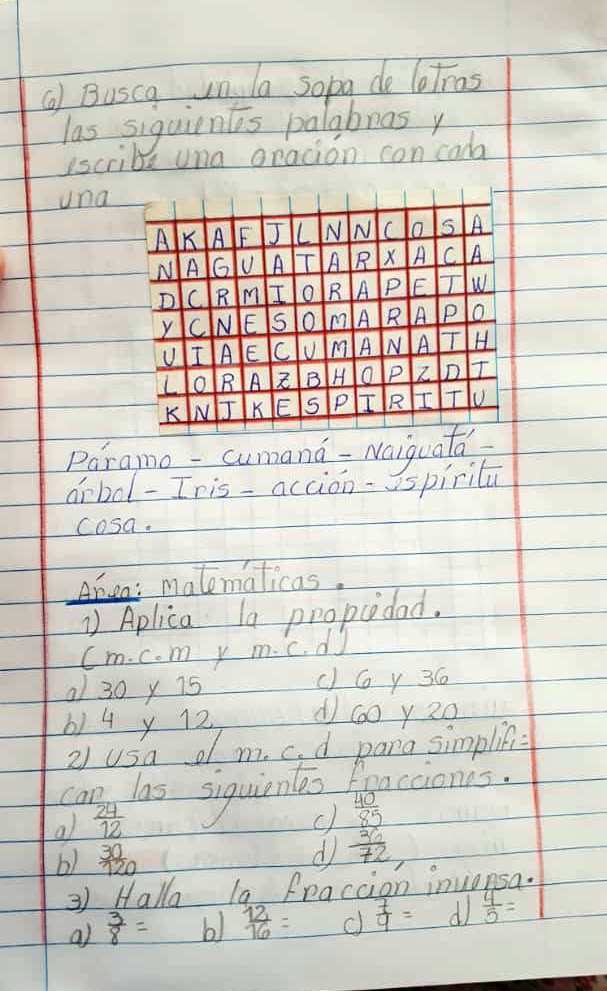 6) Busca en la sopa de letras
las siguientes palabras y
escribe una oración con cada
una
A K A F J L N N C O S A
N A G U A T A R X A C A
D C R M I O R A P E T W
Y C N E S O M A R A P O
U I A E C U M A N A T H
L O R A Z B H O P Z D I
K N J K E S P I R I T U
Páramo - cumaná - Naiguatá -
árbol - Iris - acción - espíritu
cosa.
Área: matemáticas.
1) Aplica la propiedad.
(m.c.m y m.c.d)
a) 30 y 15 c) 6 y 36
b) 4 y 12, d) 60 y 20
2) usa el m.c.d para simplifi=
car las siguientes fracciones.
a) 24/12 c) 40/85
b) 30/120 d) 36/72,
3) Halla la fracción inversa.
a) 3/8 = b) 12/16 = c) 7/9 = d) 4/5 =